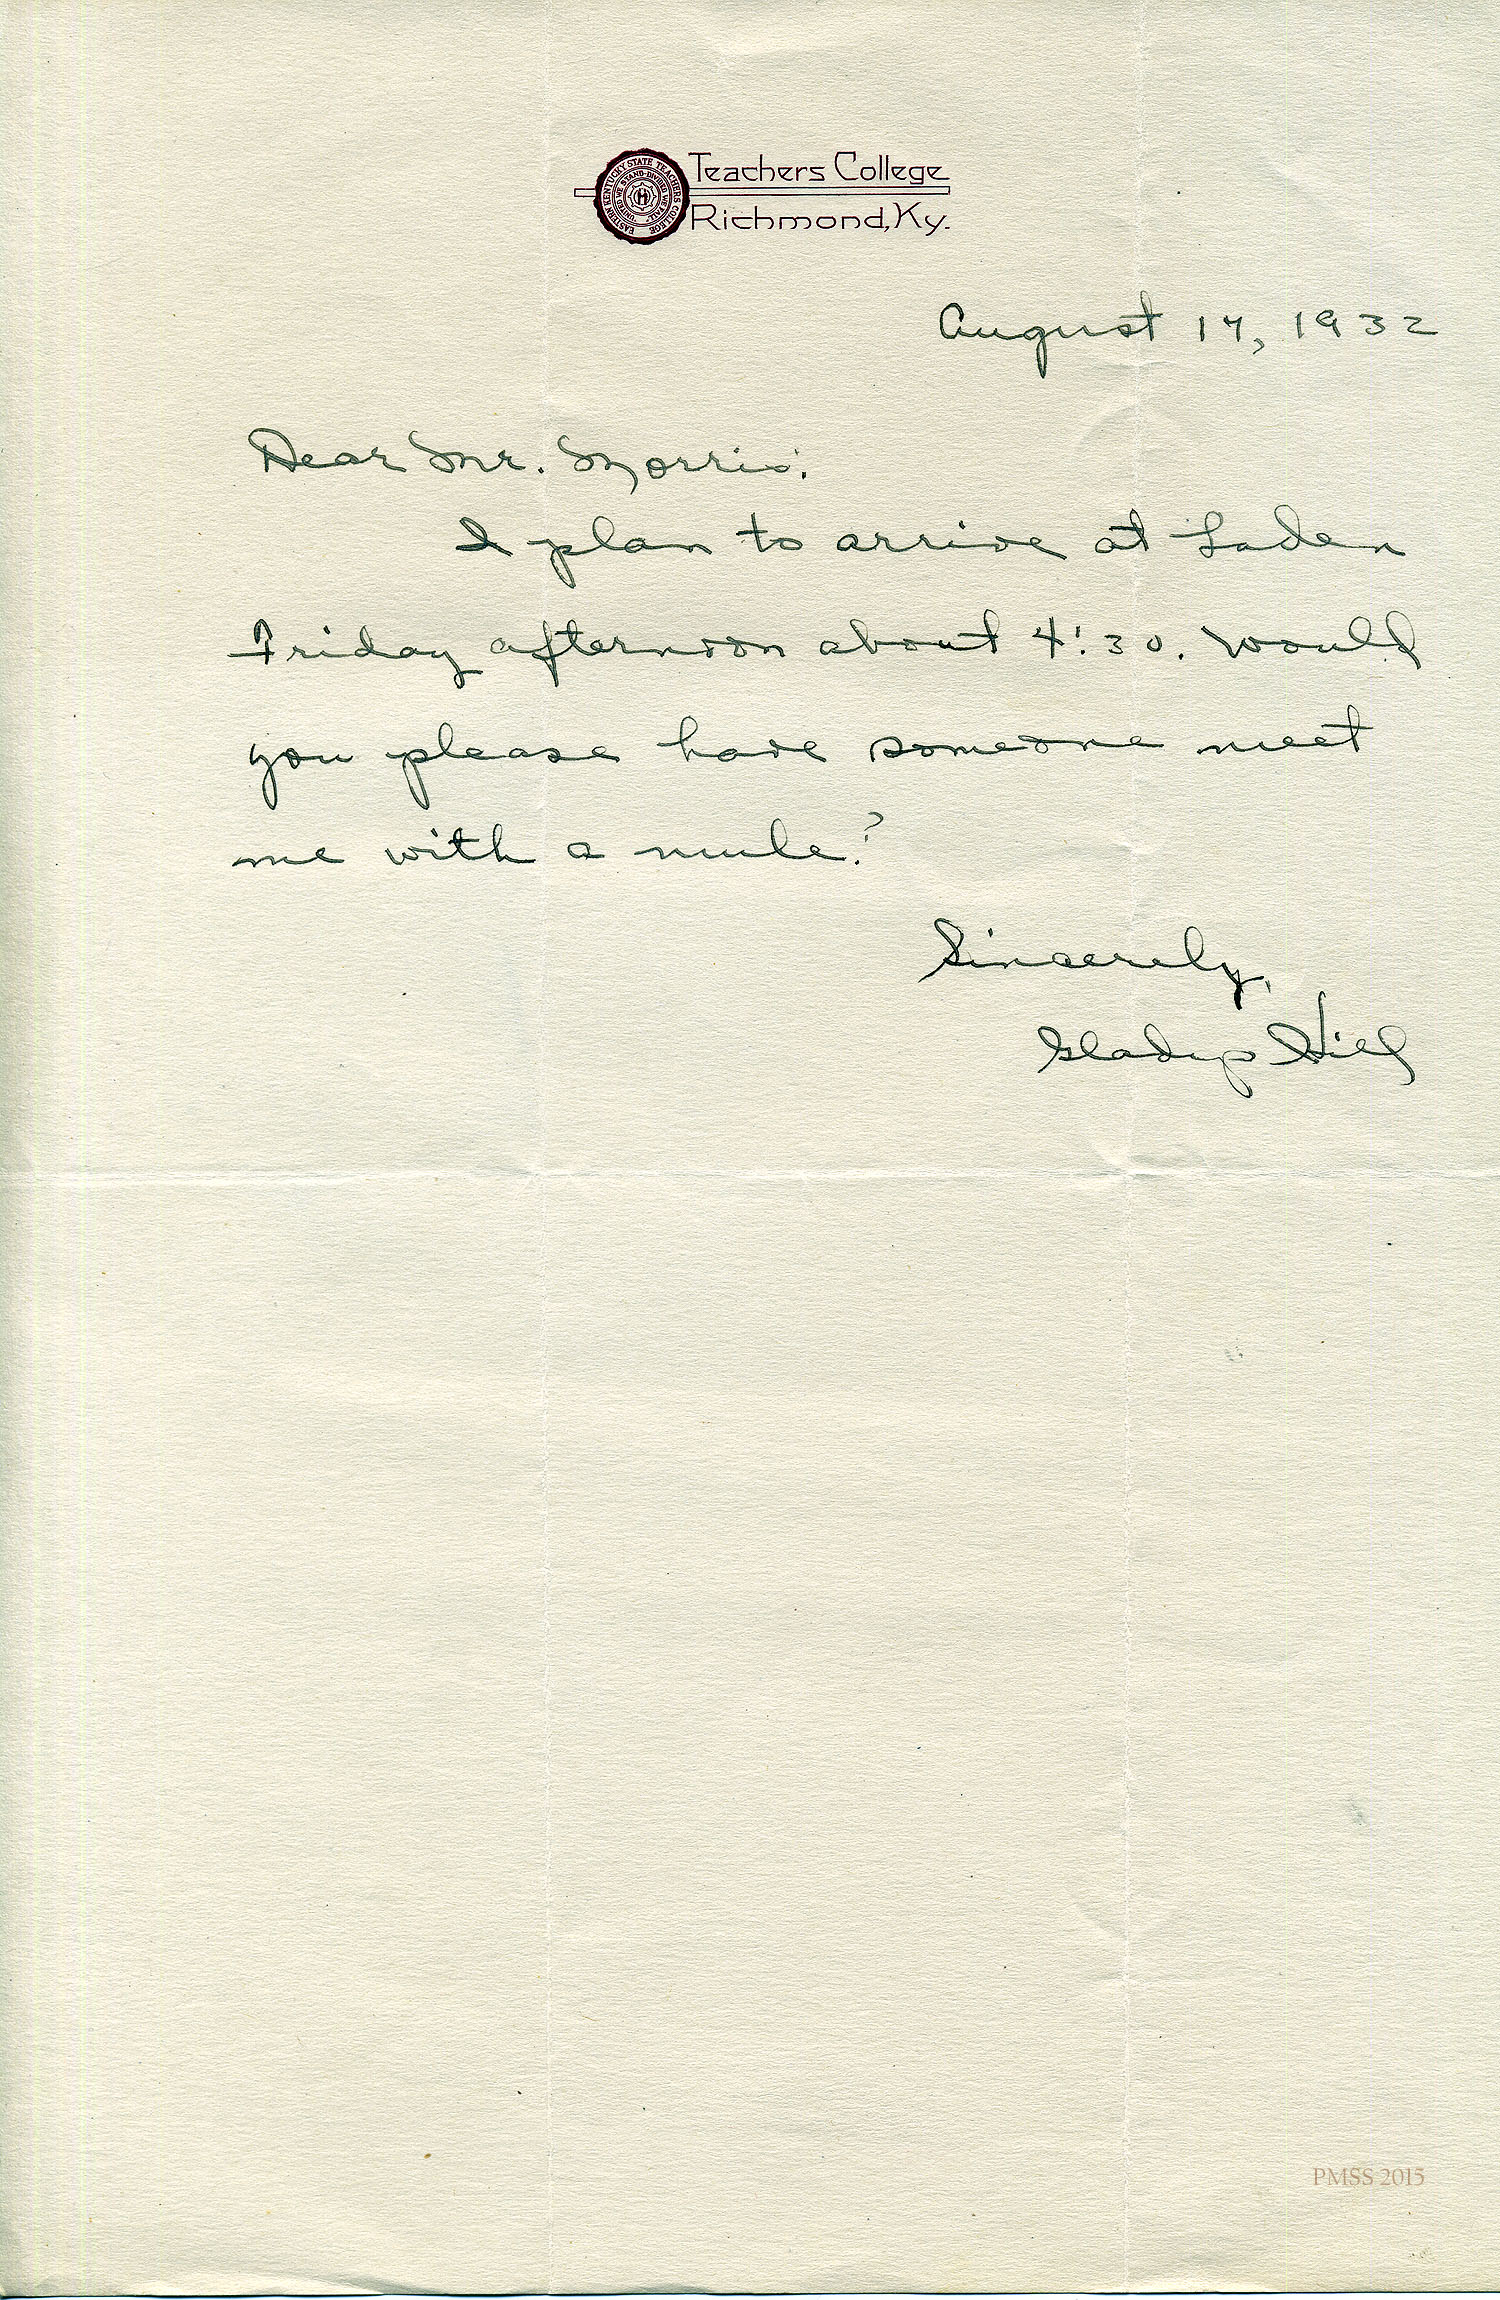 EASTERN KENTUCKY STATE TEACHERS COLLEGE
UNITED WE STAND DIVIDED WE FALL
Teachers College
Richmond, Ky.
August 17, 1932
Dear Mr. Morris:
I plan to arrive at Laden
Friday afternoon about 4:30. Would
you please have someone meet
me with a mule?
Sincerely,
Gladys Hill
PMSS 2015